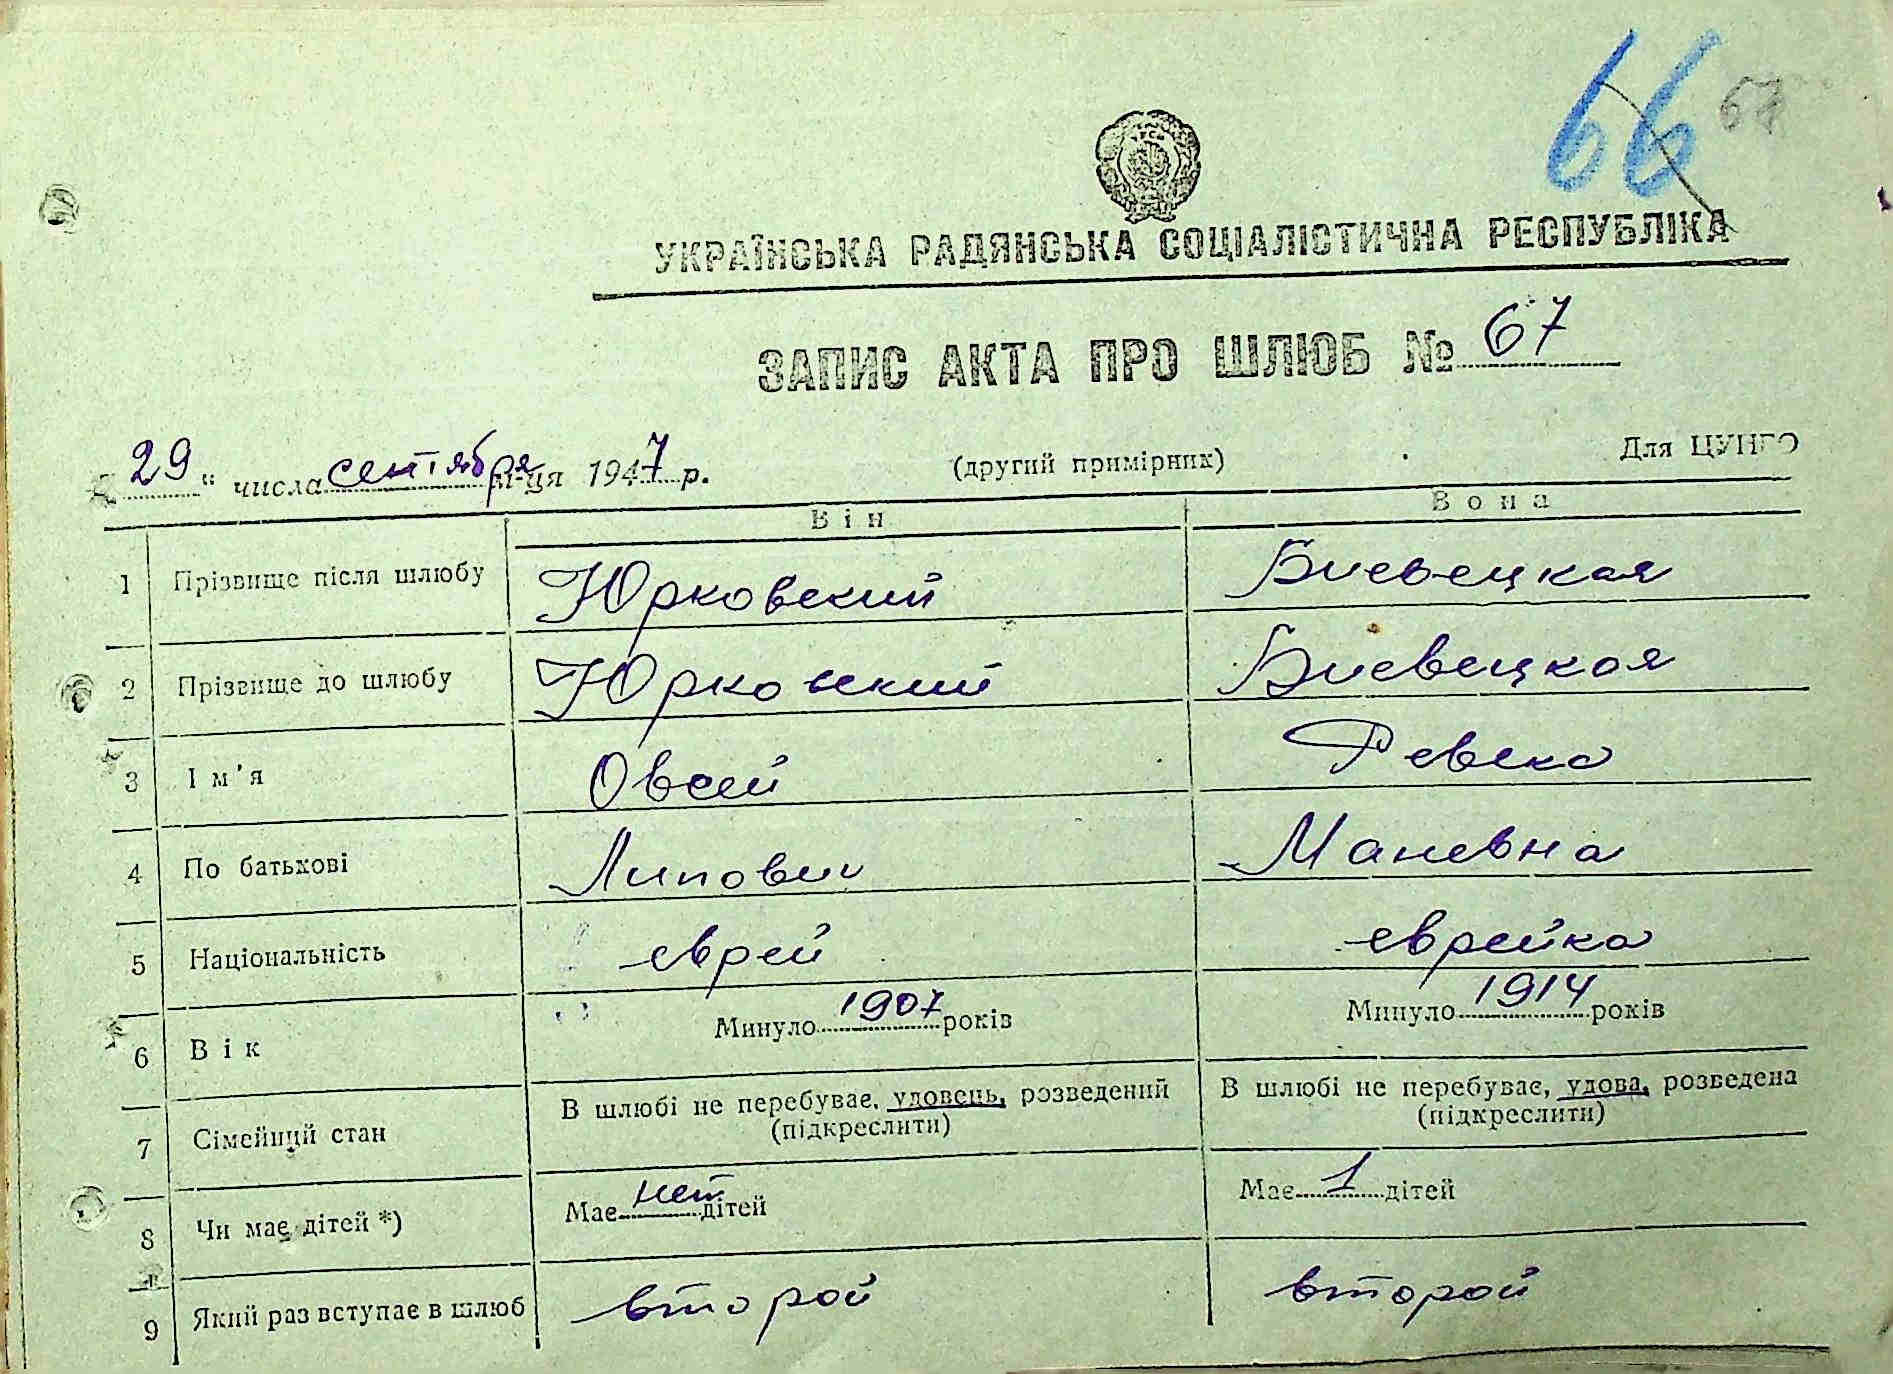 66 67
УКРАЇНСЬКА РАДЯНСЬКА СОЦІАЛІСТИЧНА РЕСПУБЛІКА
ЗАПИС АКТА ПРО ШЛЮБ № 67
„ 29 “ числа сентября м-ця 1947 р. (другий примірник) Для ЦУНГО
Він Вона
1 Прізвище після шлюбу Юрковский Биевецкая
2 Прізвище до шлюбу Юрковский Биевецкая
3 Ім'я Овсей Ревека
4 По батькові Липович Маневна
5 Національність еврей еврейка
6 Вік Минуло 1907 років Минуло 1914 років
7 Сімейний стан В шлюбі не перебуває, удовець, розведений (підкреслити) В шлюбі не перебуває, удова, розведена (підкреслити)
8 Чи має дітей *) Має нет дітей Має 1 дітей
9 Який раз вступає в шлюб второй второй